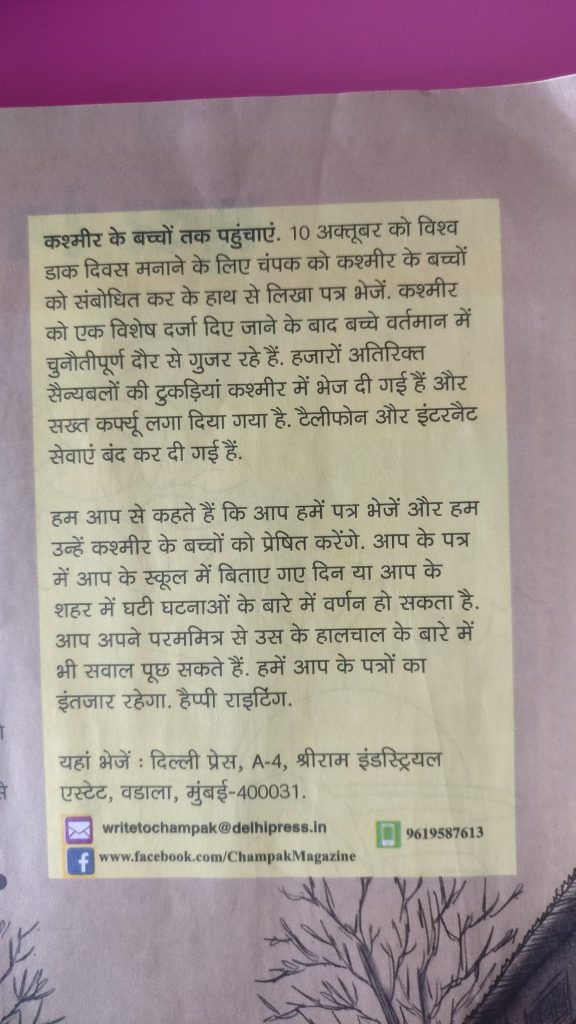 कश्मीर के बच्चों तक पहुंचाएं. 10 अक्तूबर को विश्व
डाक दिवस मनाने के लिए चंपक को कश्मीर के बच्चों
को संबोधित कर के हाथ से लिखा पत्र भेजें. कश्मीर
को एक विशेष दर्जा दिए जाने के बाद बच्चे वर्तमान में
चुनौतीपूर्ण दौर से गुजर रहे हैं. हजारों अतिरिक्त
सैन्यबलों की टुकड़ियां कश्मीर में भेज दी गई हैं और
सख्त कर्फ्यू लगा दिया गया है. टैलीफोन और इंटरनैट
सेवाएं बंद कर दी गई हैं.
हम आप से कहते हैं कि आप हमें पत्र भेजें और हम
उन्हें कश्मीर के बच्चों को प्रेषित करेंगे. आप के पत्र
में आप के स्कूल में बिताए गए दिन या आप के
शहर में घटी घटनाओं के बारे में वर्णन हो सकता है.
आप अपने परममित्र से उस के हालचाल के बारे में
भी सवाल पूछ सकते हैं. हमें आप के पत्रों का
इंतजार रहेगा. हैप्पी राइटिंग.
यहां भेजें : दिल्ली प्रेस, A-4, श्रीराम इंडस्ट्रियल
एस्टेट, वडाला, मुंबई-400031.
writetochampak@delhipress.in 9619587613
www.facebook.com/ChampakMagazine